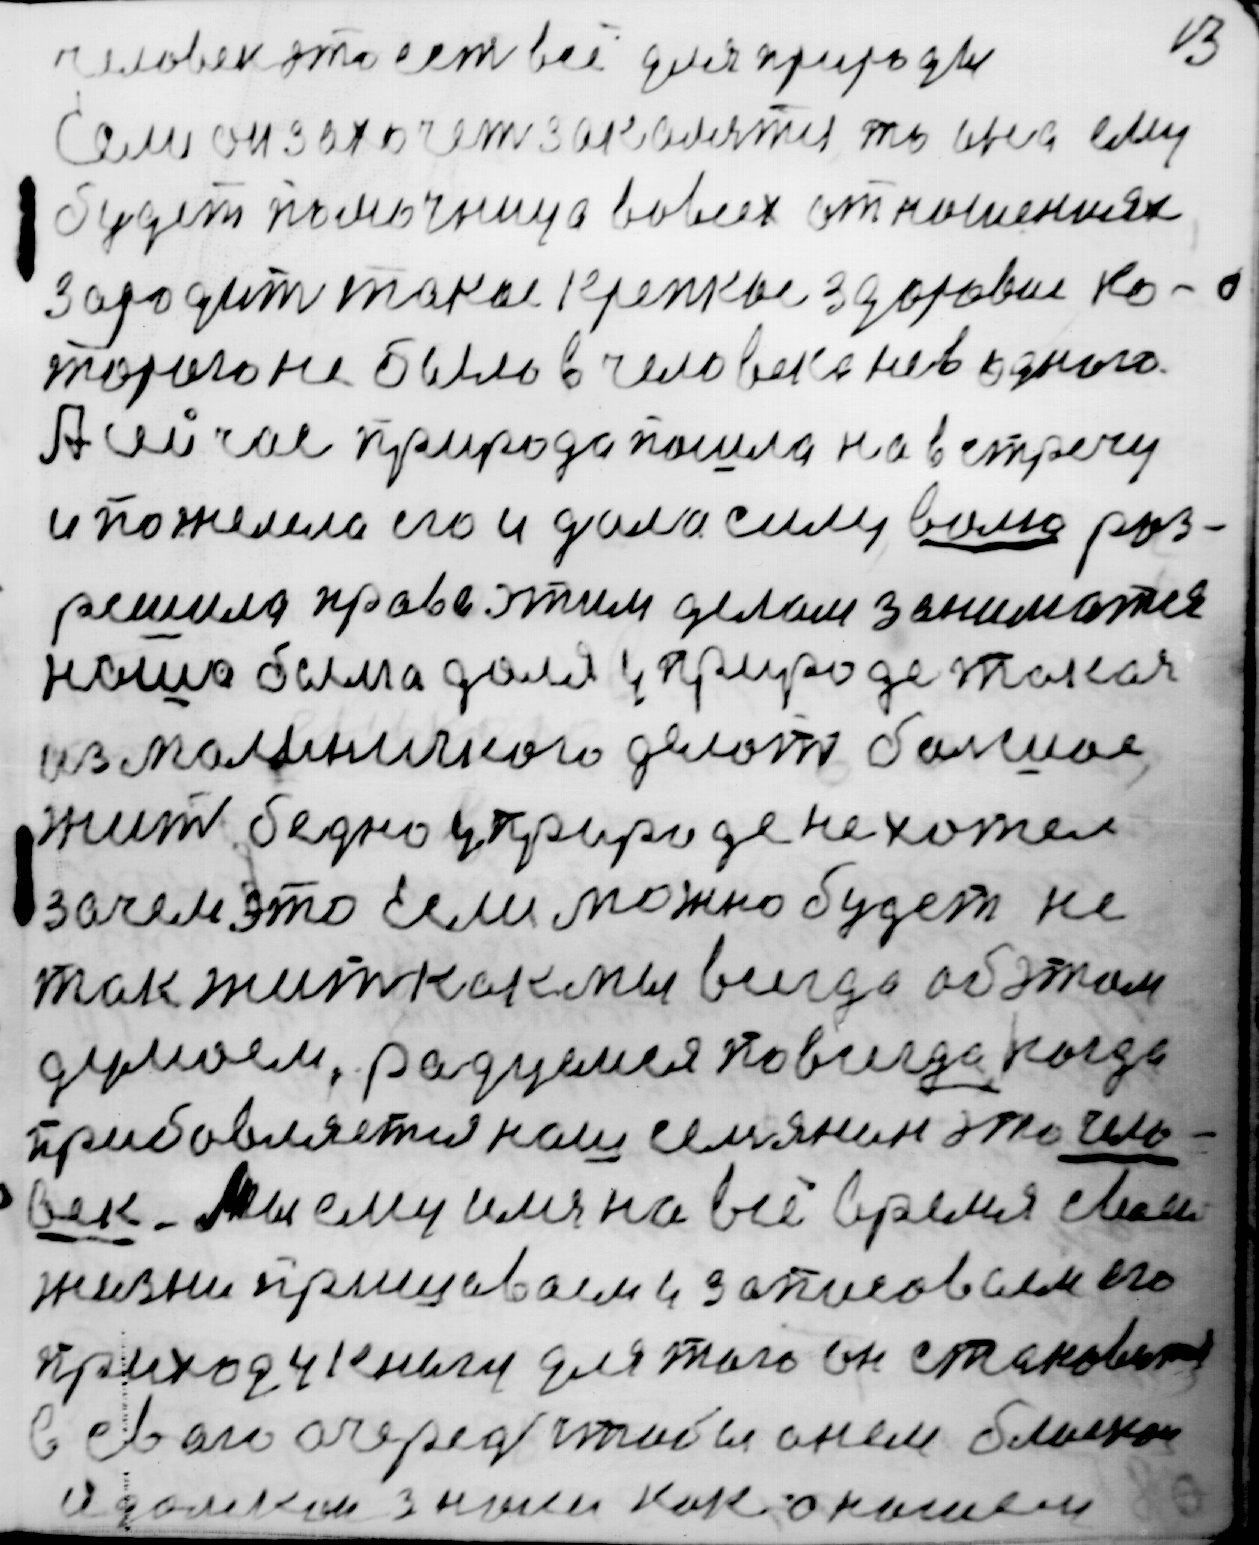 13
человек это ест всё для природы
Если он захочет закалятся, то она ему
будет помочница вовсех отношениях,
зародит такое крепкое здоровие ко-
торого не было в человека не в одного.
А сейчас природа пошла навстречу
и пожелела его и дала силу, волю роз-
решила право этим делом заниматся
наша была доля у природе такая
из маленичкого делат болшое,
жит бедно у природе не хотел
зачем это Если можно будет не
так жит как мы всегда об этом
думаем, радуемся повсегда, когда
прибовляется наш семянин это чело-
век - Мы ему имя на всё время своей
жизни прищаваем и записоваем его
приход у книгу для того он становится
в сваго очеред чтобы о нем близкаи
и далекаи знали как о нашем